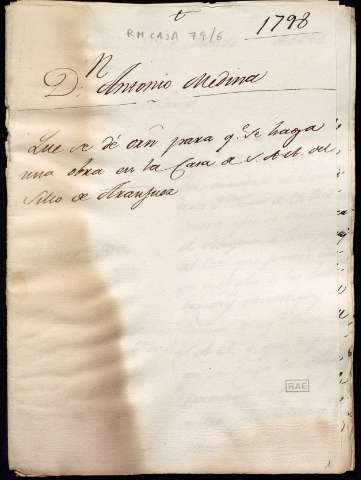 t
RM CAJA 79/6
1798
N
Dn. Antonio Medina
Que se dé orñ para qe. se haga
una obra en la Casa de S. A. el del
Sitio de Aranjuez
RAE
1